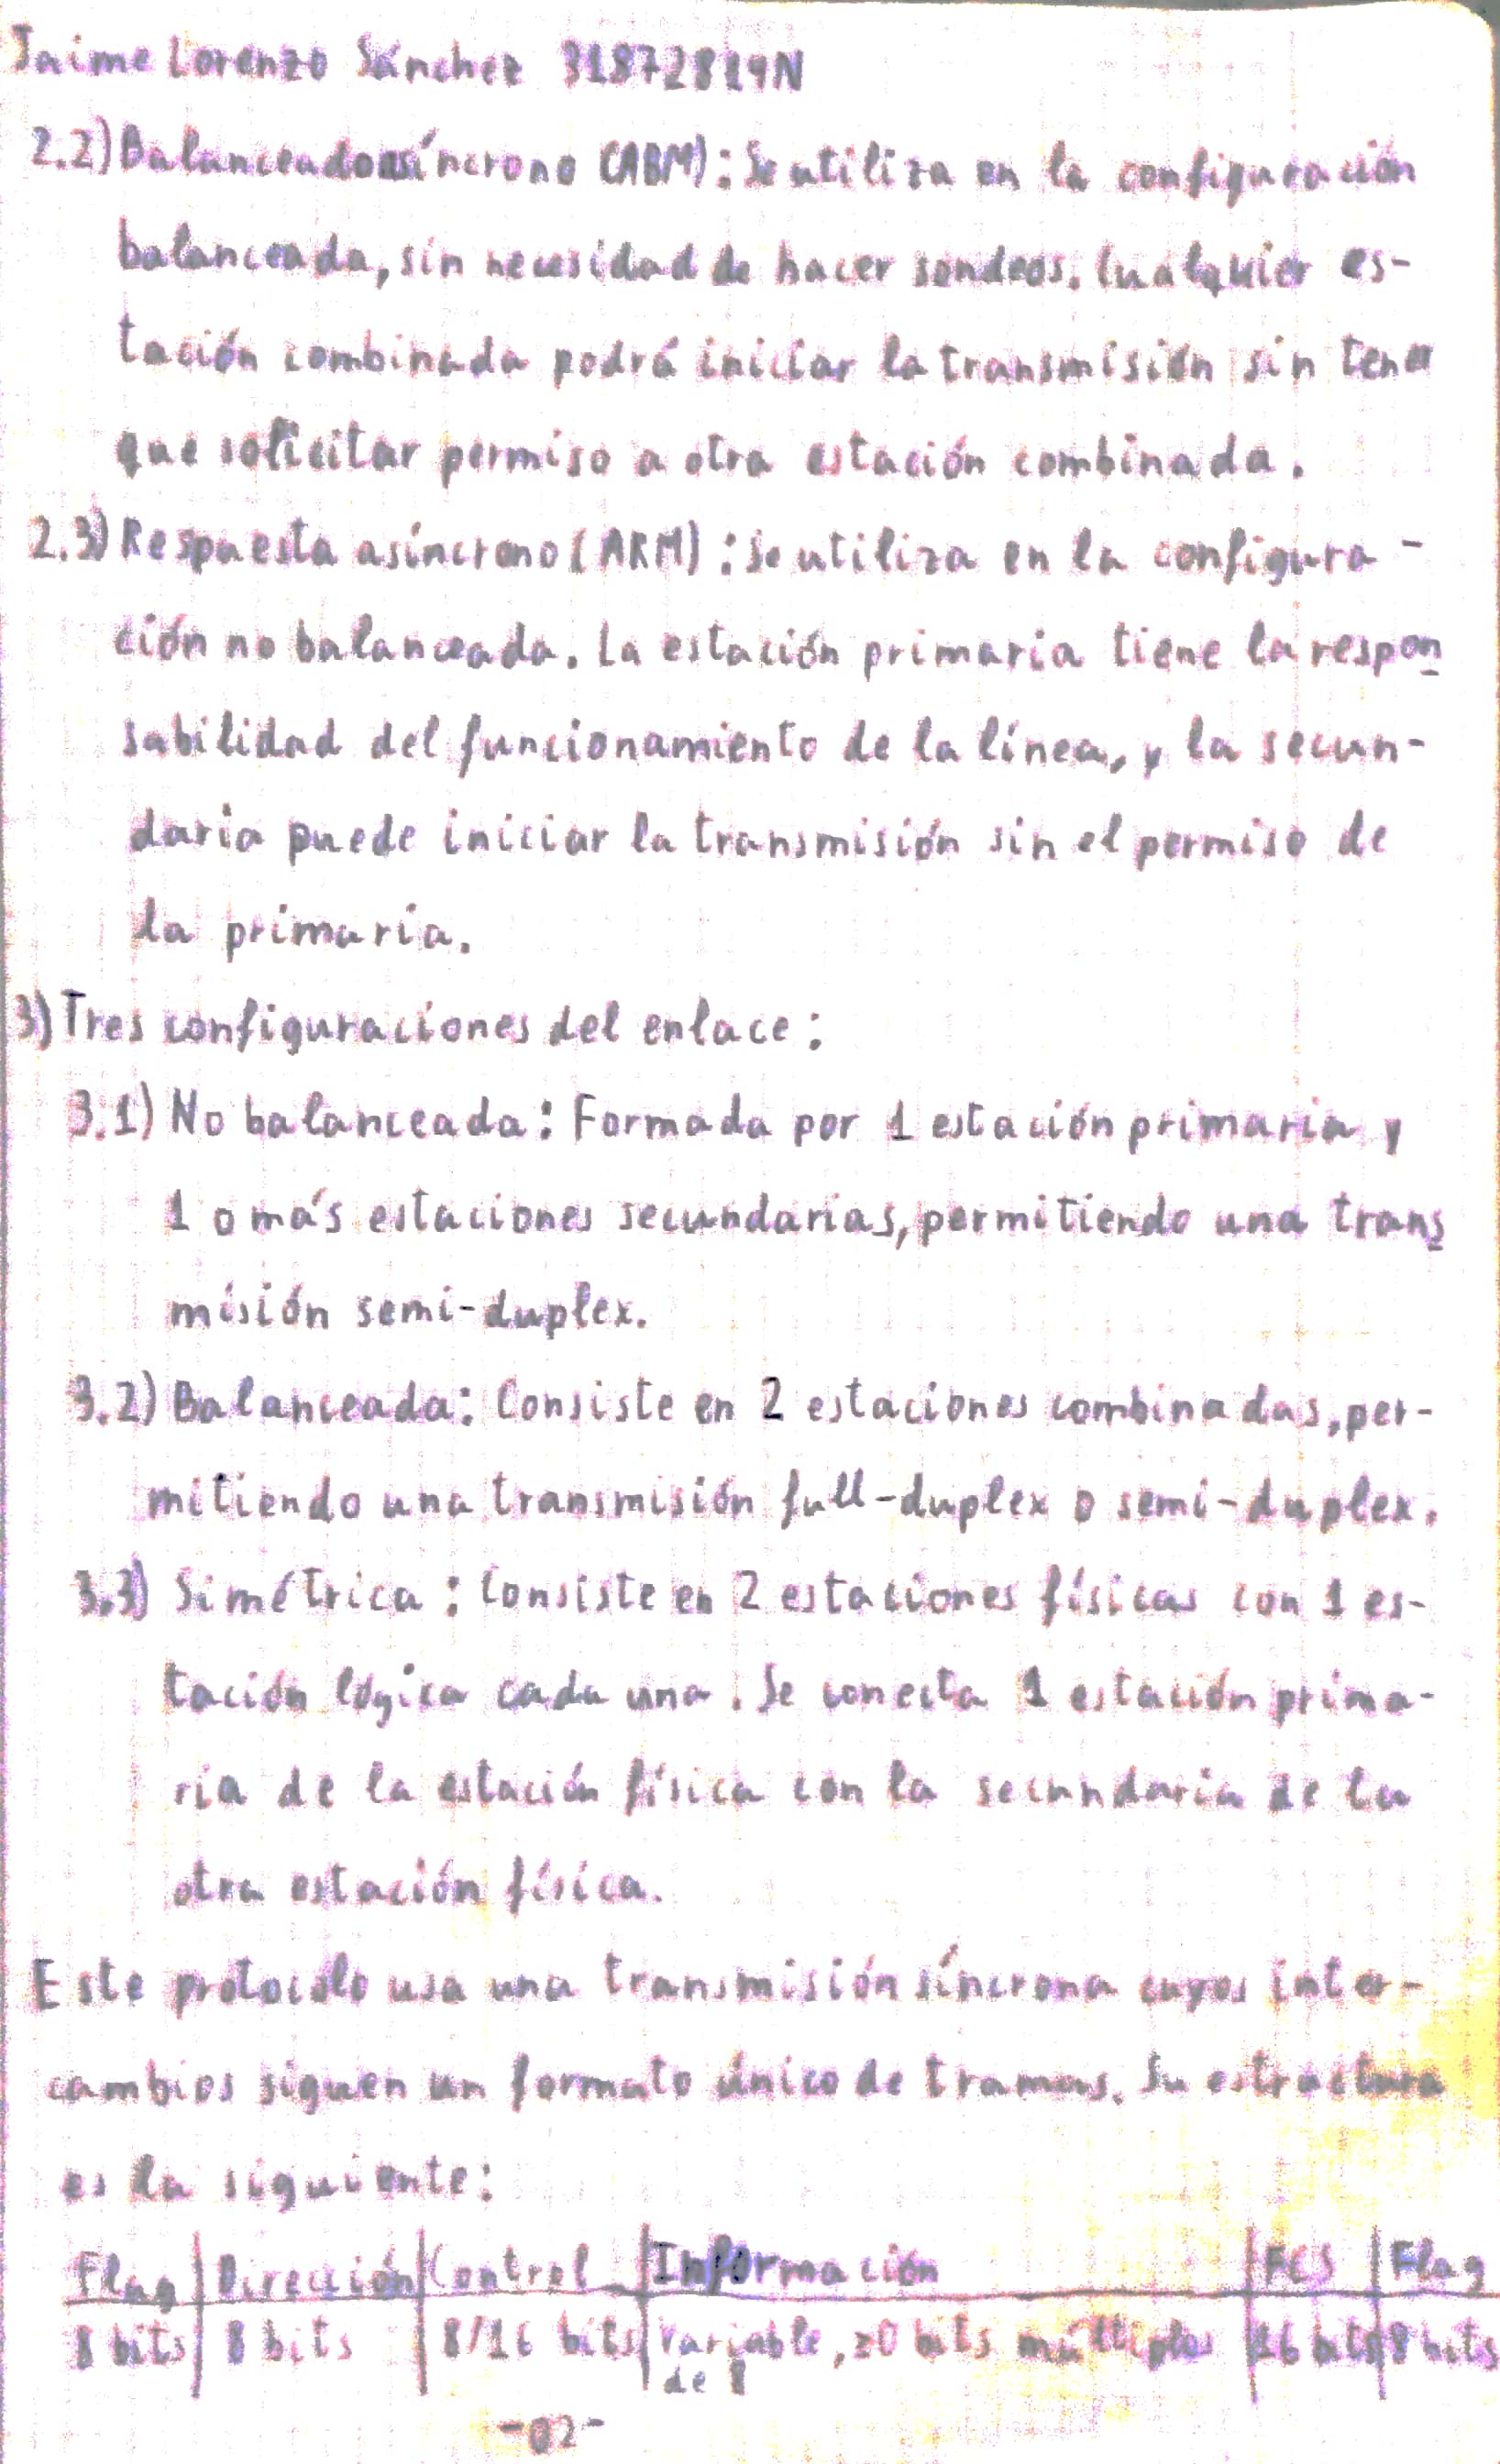 Jaime Lorenzo Sánchez 31872819N
2.2) Balanceado asíncrono (ABM): Se utiliza en la configuración
balanceada, sin necesidad de hacer sondeos. Cualquier es-
tación combinada podrá iniciar la transmisión sin tener
que solicitar permiso a otra estación combinada.
2.3) Respuesta asíncrono (ARM): Se utiliza en la configura-
ción no balanceada. La estación primaria tiene la respon
sabilidad del funcionamiento de la línea, y la secun-
daria puede iniciar la transmisión sin el permiso de
la primaria.
3) Tres configuraciones del enlace:
3.1) No balanceada: Formada por 1 estación primaria y
1 o más estaciones secundarias, permitiendo una trans
misión semi-duplex.
3.2) Balanceada: Consiste en 2 estaciones combinadas, per-
mitiendo una transmisión full-duplex o semi-duplex.
3.3) Simétrica: Consiste en 2 estaciones físicas con 1 es-
tación lógica cada una. Se conecta 1 estación prima-
ria de la estación física con la secundaria de la
otra estación física.
Este protocolo usa una transmisión síncrona cuyos inter-
cambios siguen un formato único de tramas. Su estructura
es la siguiente:
Flag | Dirección | Control | Información | FCS | Flag
8 bits | 8 bits | 8/16 bits | Variable, ≥0 bits múltiplos | 16 bits | 8 bits
de 8
-02-